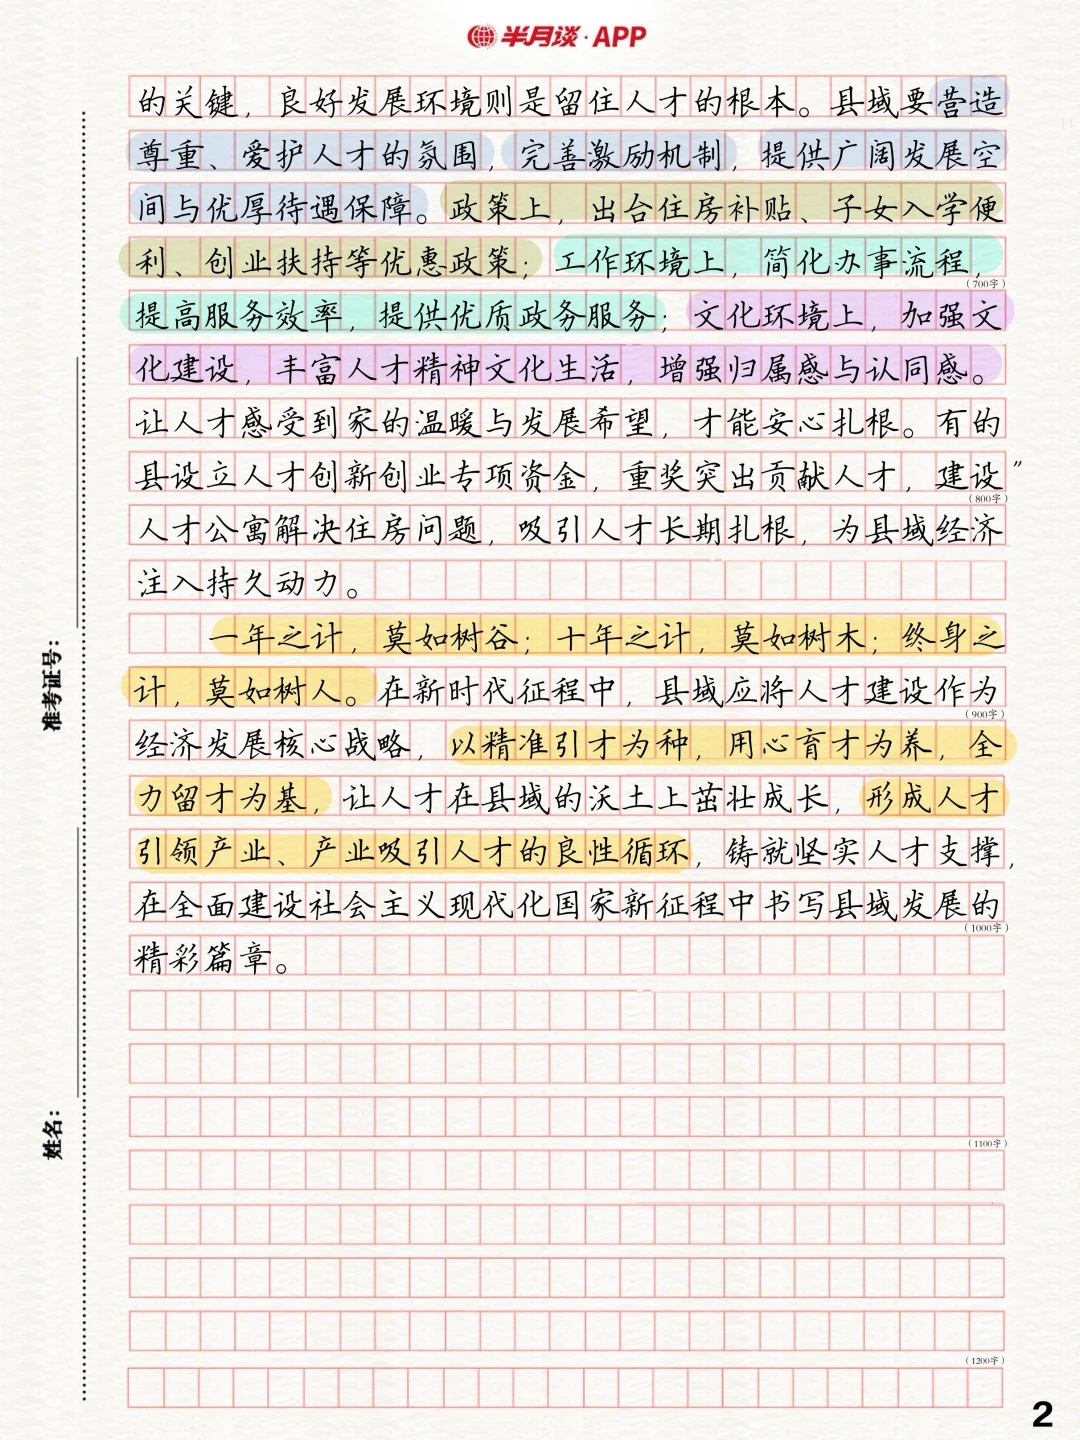 半月谈·APP
的关键，良好发展环境则是留住人才的根本。县域要营造
尊重、爱护人才的氛围，完善激励机制，提供广阔发展空
间与优厚待遇保障。政策上，出台住房补贴、子女入学便
利、创业扶持等优惠政策；工作环境上，简化办事流程，
（700字）
提高服务效率，提供优质政务服务；文化环境上，加强文
化建设，丰富人才精神文化生活，增强归属感与认同感。
让人才感受到家的温暖与发展希望，才能安心扎根。有的
县设立人才创新创业专项资金，重奖突出贡献人才，建设”
（800字）
人才公寓解决住房问题，吸引人才长期扎根，为县域经济
注入持久动力。
一年之计，莫如树谷；十年之计，莫如树木；终身之
计，莫如树人。在新时代征程中，县域应将人才建设作为
（900字）
经济发展核心战略，以精准引才为种，用心育才为养，全
力留才为基，让人才在县域的沃土上茁壮成长，形成人才
引领产业、产业吸引人才的良性循环，铸就坚实人才支撑，
在全面建设社会主义现代化国家新征程中书写县域发展的
（1000字）
精彩篇章。
（1100字）
（1200字）
准考证号：
姓名：
2